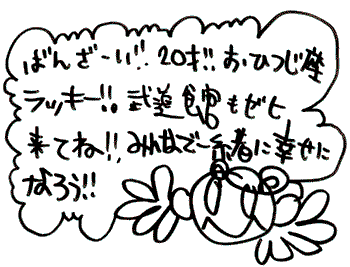 ばんざーい!! 20才!! おひつじ座
ラッキー!! 武道館もゼヒ
来てね!! みんなで一緒に幸せに
なろう!!